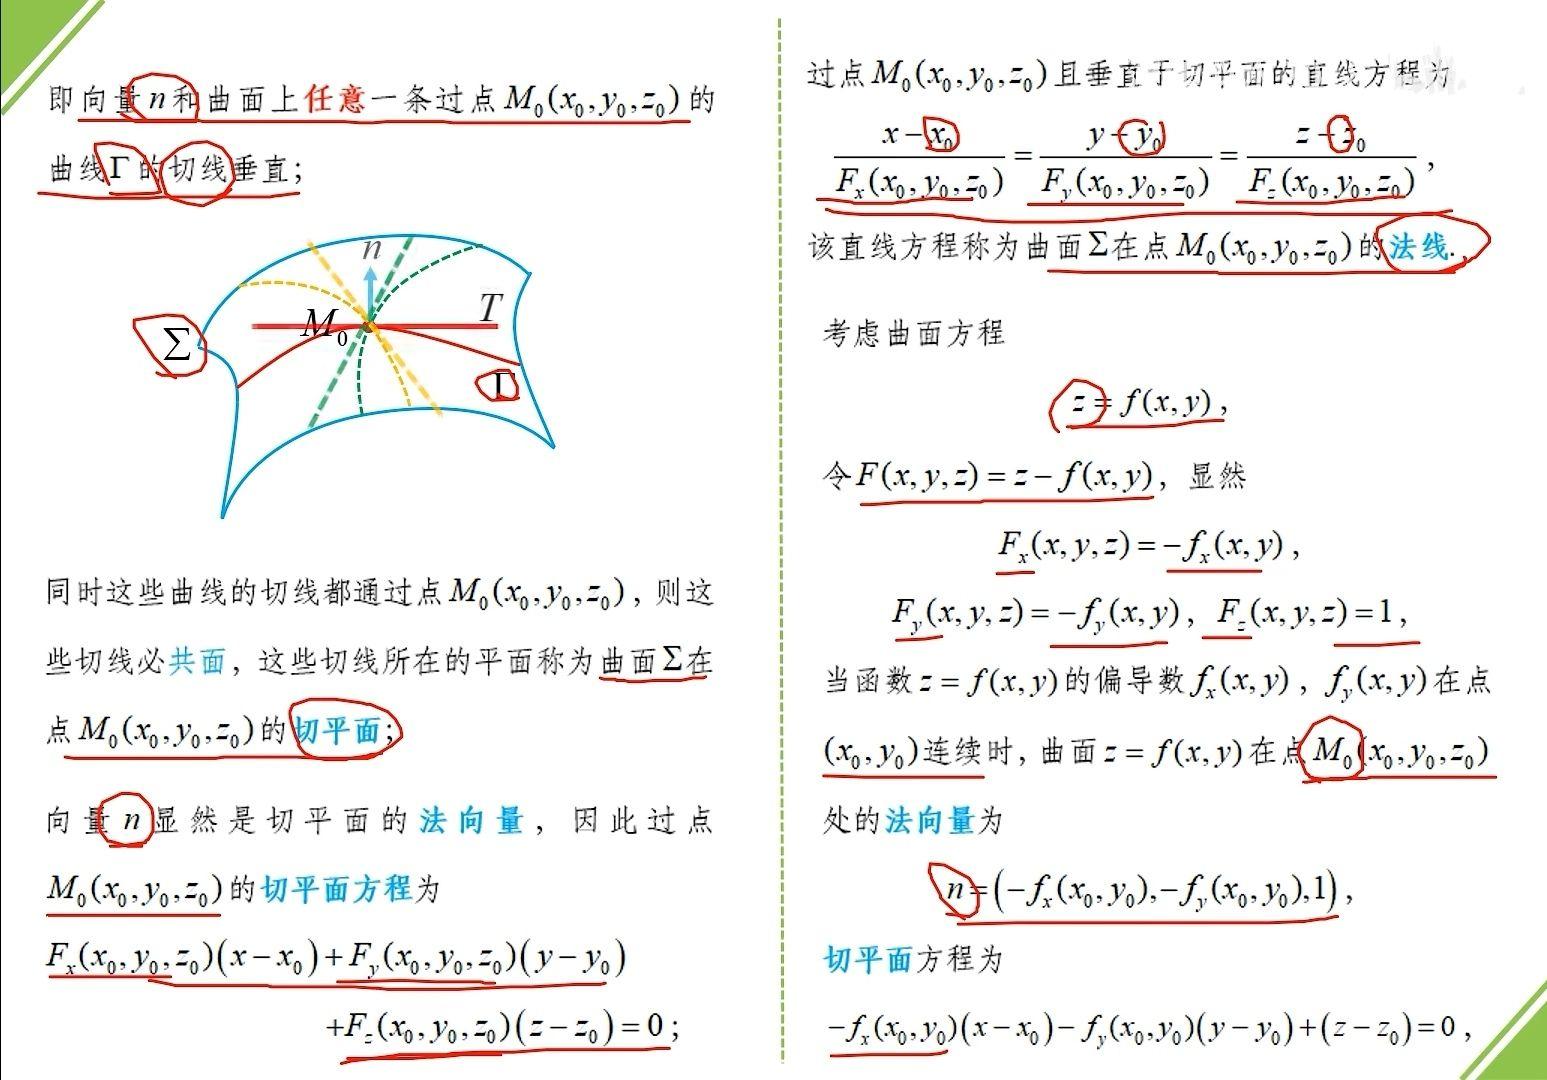 即向量n和曲面上任意一条过点M₀(x₀,y₀,z₀)的
曲线Γ的切线垂直;
n
T
M₀
Σ
Γ
同时这些曲线的切线都通过点M₀(x₀,y₀,z₀)，则这
些切线必共面，这些切线所在的平面称为曲面Σ在
点M₀(x₀,y₀,z₀)的切平面;
向量n显然是切平面的法向量，因此过点
M₀(x₀,y₀,z₀)的切平面方程为
Fₓ(x₀,y₀,z₀)(x−x₀)+F_y(x₀,y₀,z₀)(y−y₀)
+F_z(x₀,y₀,z₀)(z−z₀)=0;
过点M₀(x₀,y₀,z₀)且垂直于切平面的直线方程为
(x−x₀)/Fₓ(x₀,y₀,z₀)=(y−y₀)/F_y(x₀,y₀,z₀)=(z−z₀)/F_z(x₀,y₀,z₀),
该直线方程称为曲面Σ在点M₀(x₀,y₀,z₀)的法线.
考虑曲面方程
z=f(x,y),
令F(x,y,z)=z−f(x,y)，显然
Fₓ(x,y,z)=−fₓ(x,y),
F_y(x,y,z)=−f_y(x,y), F_z(x,y,z)=1,
当函数z=f(x,y)的偏导数fₓ(x,y), f_y(x,y)在点
(x₀,y₀)连续时，曲面z=f(x,y)在点M₀(x₀,y₀,z₀)
处的法向量为
n=(−fₓ(x₀,y₀),−f_y(x₀,y₀),1),
切平面方程为
−fₓ(x₀,y₀)(x−x₀)−f_y(x₀,y₀)(y−y₀)+(z−z₀)=0,